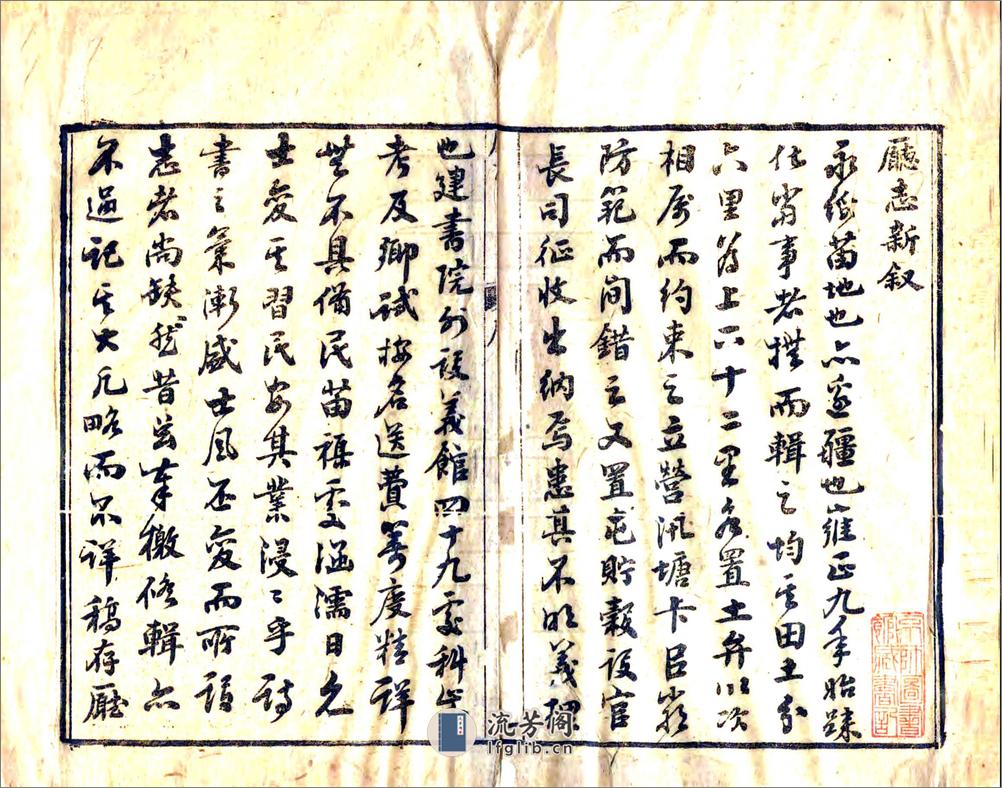 廳志新叙
永綏苗地也亦邊疆也雍正九年始隸
仕宦事者撰而輯之均其田土分
六里為上六十二里各置土弁以次
相屬而約束之立營汛塘卡以嚴
防範而間錯之又置屯貯穀設官
長司征收出納焉患其不明義理
也建書院外設義館四十九處科歲
考及鄉試按名送費籌度精詳
無不具備民苗樂受涵濡日久
士愛其習民安其業浸浸乎詩
書之氣漸盛士風丕變而所謂
志者尚缺然昔宰奉檄修輯亦
不過記其大凡略而不詳稿存廳
京師圖書館藏書記
流芳阁
lfglib.cn